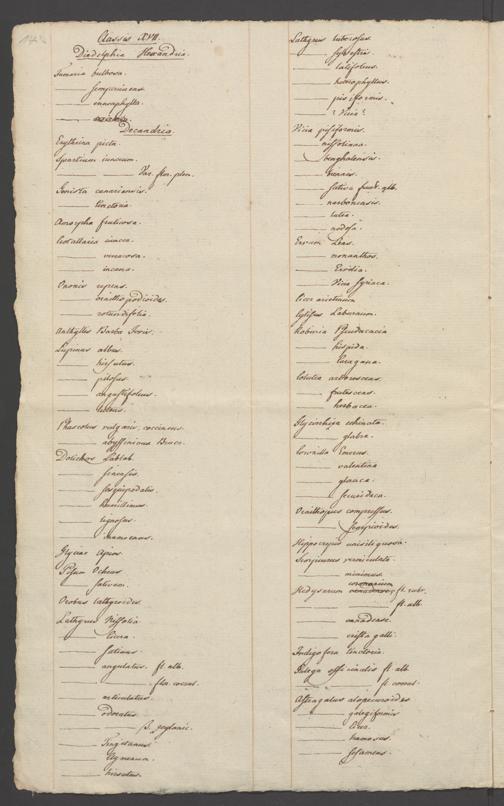 Classis XVII.
Diadelphia Hexandria.
Fumaria bulbosa.
—— sempervirens.
—— enneaphylla.
Decandria.
Erythrina picta.
Spartium junceum.
—— —— Var. flor. plen.
Genista canariensis.
—— tinctoria.
Amorpha fruticosa.
Crotallaria juncea.
—— verrucosa.
—— incana.
Ononis repens.
—— ornithopodioides.
—— rotundifolia.
Anthyllis Barba Jovis.
Lupinus albus.
—— hirsutus.
—— pilosus.
—— angustifolius.
—— luteus.
Phaseolus vulgaris coccineus.
—— abyssinicus Bruce.
Dolichos Lablab.
—— sinensis.
—— sesquipedalis.
——
—— lignosus.
——
Glycine Apios.
Pisum Ochrus.
—— sativum.
Orobus lathyroides.
Lathyrus Nissolia
—— Cicera.
—— sativus.
—— angulatus. fl. alb.
—— —— flor. coccin.
—— articulatus.
—— odoratus.
—— —— β. zeylanic.
—— Tingitanus.
—— Clymenum.
—— hirsutus.
Lathyrus tuberosus.
—— sylvestris.
—— latifolius.
—— heterophyllus.
—— pisiformis.
—— ? Vicia?
Vicia pisiformis.
—— nissoliana.
—— benghalensis.
—— biennis.
—— sativa fruct. alb.
—— narbonensis.
—— lutea.
——
Ervum Lens.
—— monanthos.
—— Ervilia.
—— Vicia syriaca.
Cicer arietinum
Cytisus Laburnum.
Robinia Pseudacacia
—— hispida.
—— Caragana.
Colutea arborescens.
—— frutescens.
—— herbacea.
Glycirrhiza echinata.
—— glabra.
Coronilla Emerus.
—— valentina
—— glauca.
—— securidaca.
Ornithopus compressus.
—— scorpioides.
Hippocrepis unisiliquosa.
Scorpiurus vermiculata.
—— minimus.
coronarium
Hedysarum canadense fl. rubr.
—— —— fl. alb.
—— canadense.
—— crista galli.
Indigofera tinctoria.
Galega officinalis fl. alb.
—— —— fl. coerul.
Astragalus alopecuroides
—— galegiformis
—— Cicer.
—— hamosus.
—— sesameus.